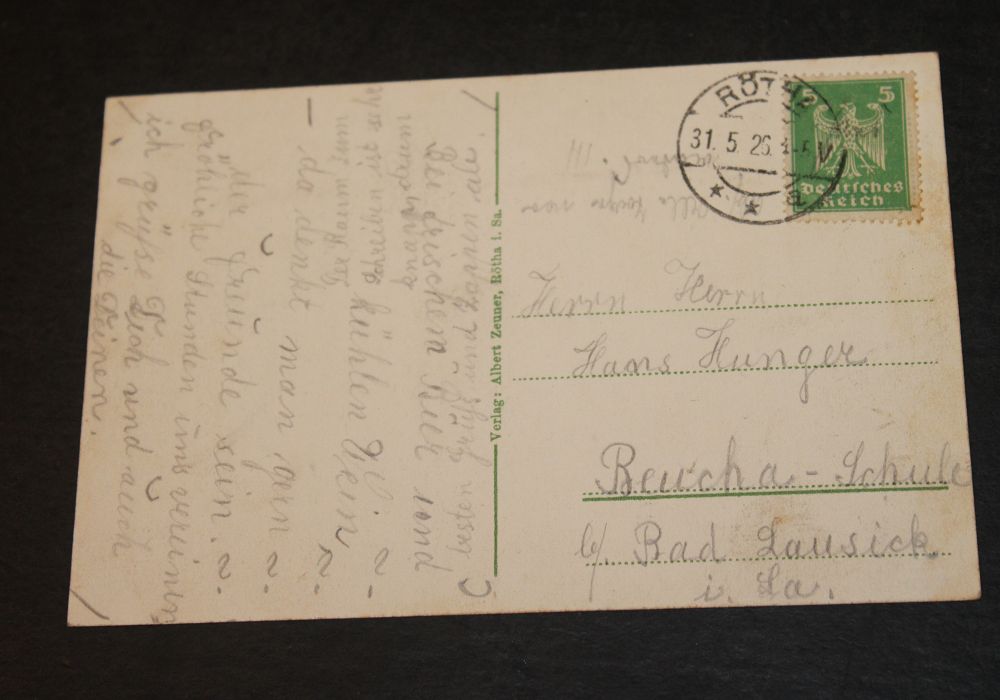 Bei frischem Bier und
kühlen Wein
da denkt man gern
der Freunde sein.
fröhliche Stunden uns vereinen
ich grüße Dich und auch
die Deinen.
Der Raum zum
Schreiben ist sehr
besten Gruß und
Verlag: Albert Zeuner, Rötha i. Sa.
RÖTHA
31.5.26.
5 5
Deutsches
Reich
Herrn Herrn
Hans Hunger
Beucha-Schule
b/. Bad Lausick
i. Sa.